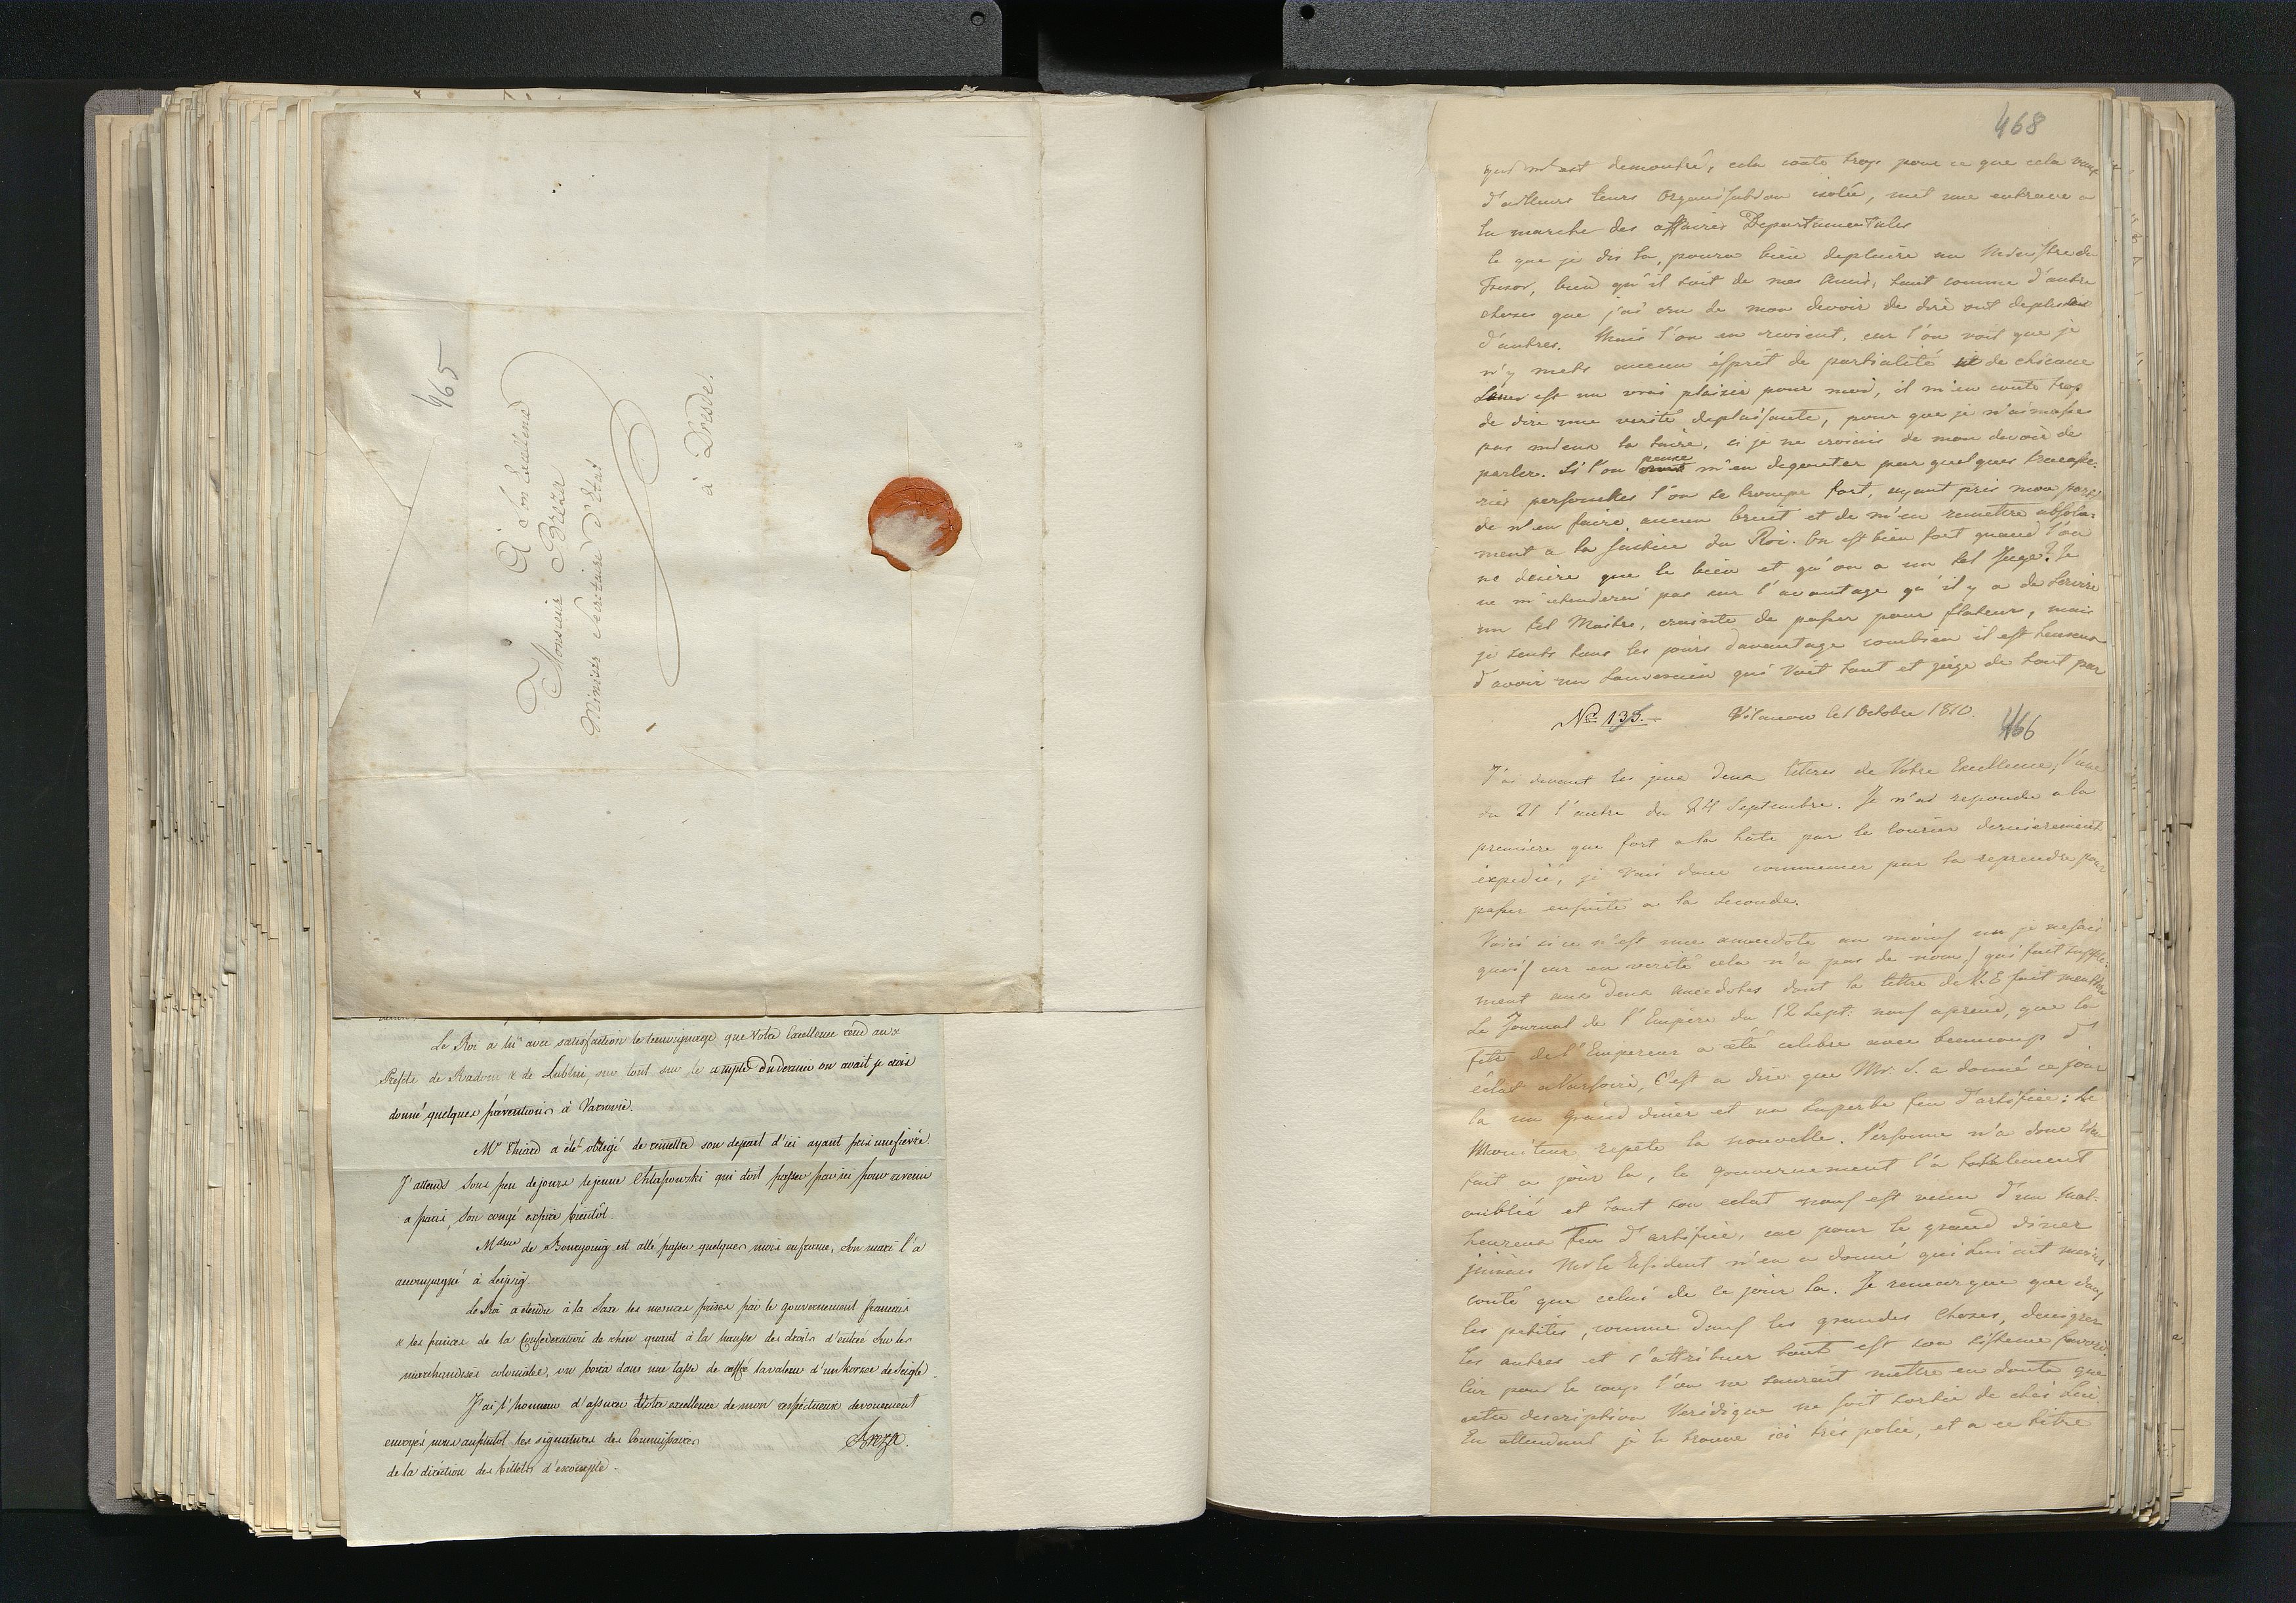 465
A Son Excellence
Monsieur Breza
Ministre Secrétaire d'Etat
à Dresde.
Le Roi a lu avec satisfaction le temoignage que Votre Excellence rend aux
Prefets de Radom & de Lublin, sur tout sur le compte du dernier on avait je crois
donné quelques préventions à Varsovie.
Mr Thiard a été obligé de remettre son depart d'ici ayant pris une fievre.
J'attends sous peu de jours le jeune Chlapowski qui doit passer par ici pour revenir
a paris, son congé expire bientôt.
Mdme de Bourgoing est allé passer quelques mois en france, son mari l'a
accompagné à Leipzig.
Le Roi a étendu à la Saxe les mesures prises par le gouvernement francais
& les princes de la Confederation de rhin quant à la hausse des droits d'entrée sur les
marchandises coloniales, on boira dans une tasse de caffé la valeur d'un korzec de seigle.
J'ai l'honneur d'assurer Votre excellence de mon respectueux devouement
envoyés nous aussitôt les signatures des Commissaires
Breza.
de la direction des billets d'escompte.
468
qui m'est demontré, cela coute trop pour ce que cela vaut
d'ailleurs leurs Organisation isolée, met une entrave a
la marche des affaires Departementales
Ce que je dis la, poura bien deplaire au Ministre du
Tresor, bien qu'il soit de mes Amis, tout comme d'autre
choses que j'ai cru de mon devoir de dire ont deplus a
d'autres. Mais l'on en revient, car l'on voit que je
n'y mets aucun ésprit de partialité ni de chicane
Louer est un vrai plaisir pour moi, il m'en coute trop
de dire une verité deplaisante, pour que je n'aimasse
pas mieux la taire, si je ne croiais de mon devoir de
parler. Si l'on pense m'en degouter par quelques tracasse-
ries personelles l'on se trompe fort, ayant pris mon parti
de n'en faire aucun bruit et de m'en remettre absolu-
ment a la Justice du Roi. On est bien fort quand l'on
ne desire que le bien et qu'on a un tel Juge? Je
ne m'etenderai pas sur l'avantage qu'il y a de Servire
un tel Maitre, crainte de passer pour flateur, mais
je sents tous les jours davantage combien il est heureux
d'avoir un Souverain qui Voit tout et juge de tout par
No 135. Vilanow le 1 Octobre 1810.
466
J'ai devant les yeux deux lettres de Votre Excellence, l'une
du 21 l'autre du 24 Septembre. Je n'ai repondu a la
premiere que fort a la hâte par le courier dernierement
expedié, je vais donc commencer par la reprendre pour
passer ensuite a la Seconde.
Voici si ce n'est une anecdote au moins un je ne sais
quoi (car en verité cela n'a pas de nom) qui fait supple-
ment aux deux anecdotes dont la lettre de V. E fait mention
Le Journal de l'Empire du 12 Sept: nous aprend, que la
fête de l'Empereur a été celebre avec beaucoup d'
éclat a Varsovie, C'est a dire que Mr. S. a donné ce jour
la un grand diner et un superbe feu d'artifice: Le
Moniteur repete la nouvelle. Personne n'a donc rien
fait ce jour la, le gouvernement l'a totalement
oublié et tout son eclat nous est venu d'un mal-
heureux feu d'artifice, car pour le grand diner
jamais Mr le Resident n'en a donné qui lui ait moins
couté que celui de ce jour la. Je remarque que dans
les petites, comme dans les grandes choses, denigrer
les autres et s'attribuer tout est son sisteme favori.
Car pour le coup l'on ne sauroit mettre en doute que
cette description Veridique ne soit sortie de chés Lui.
En attendant je le trouve ici très polie, et a ce titre